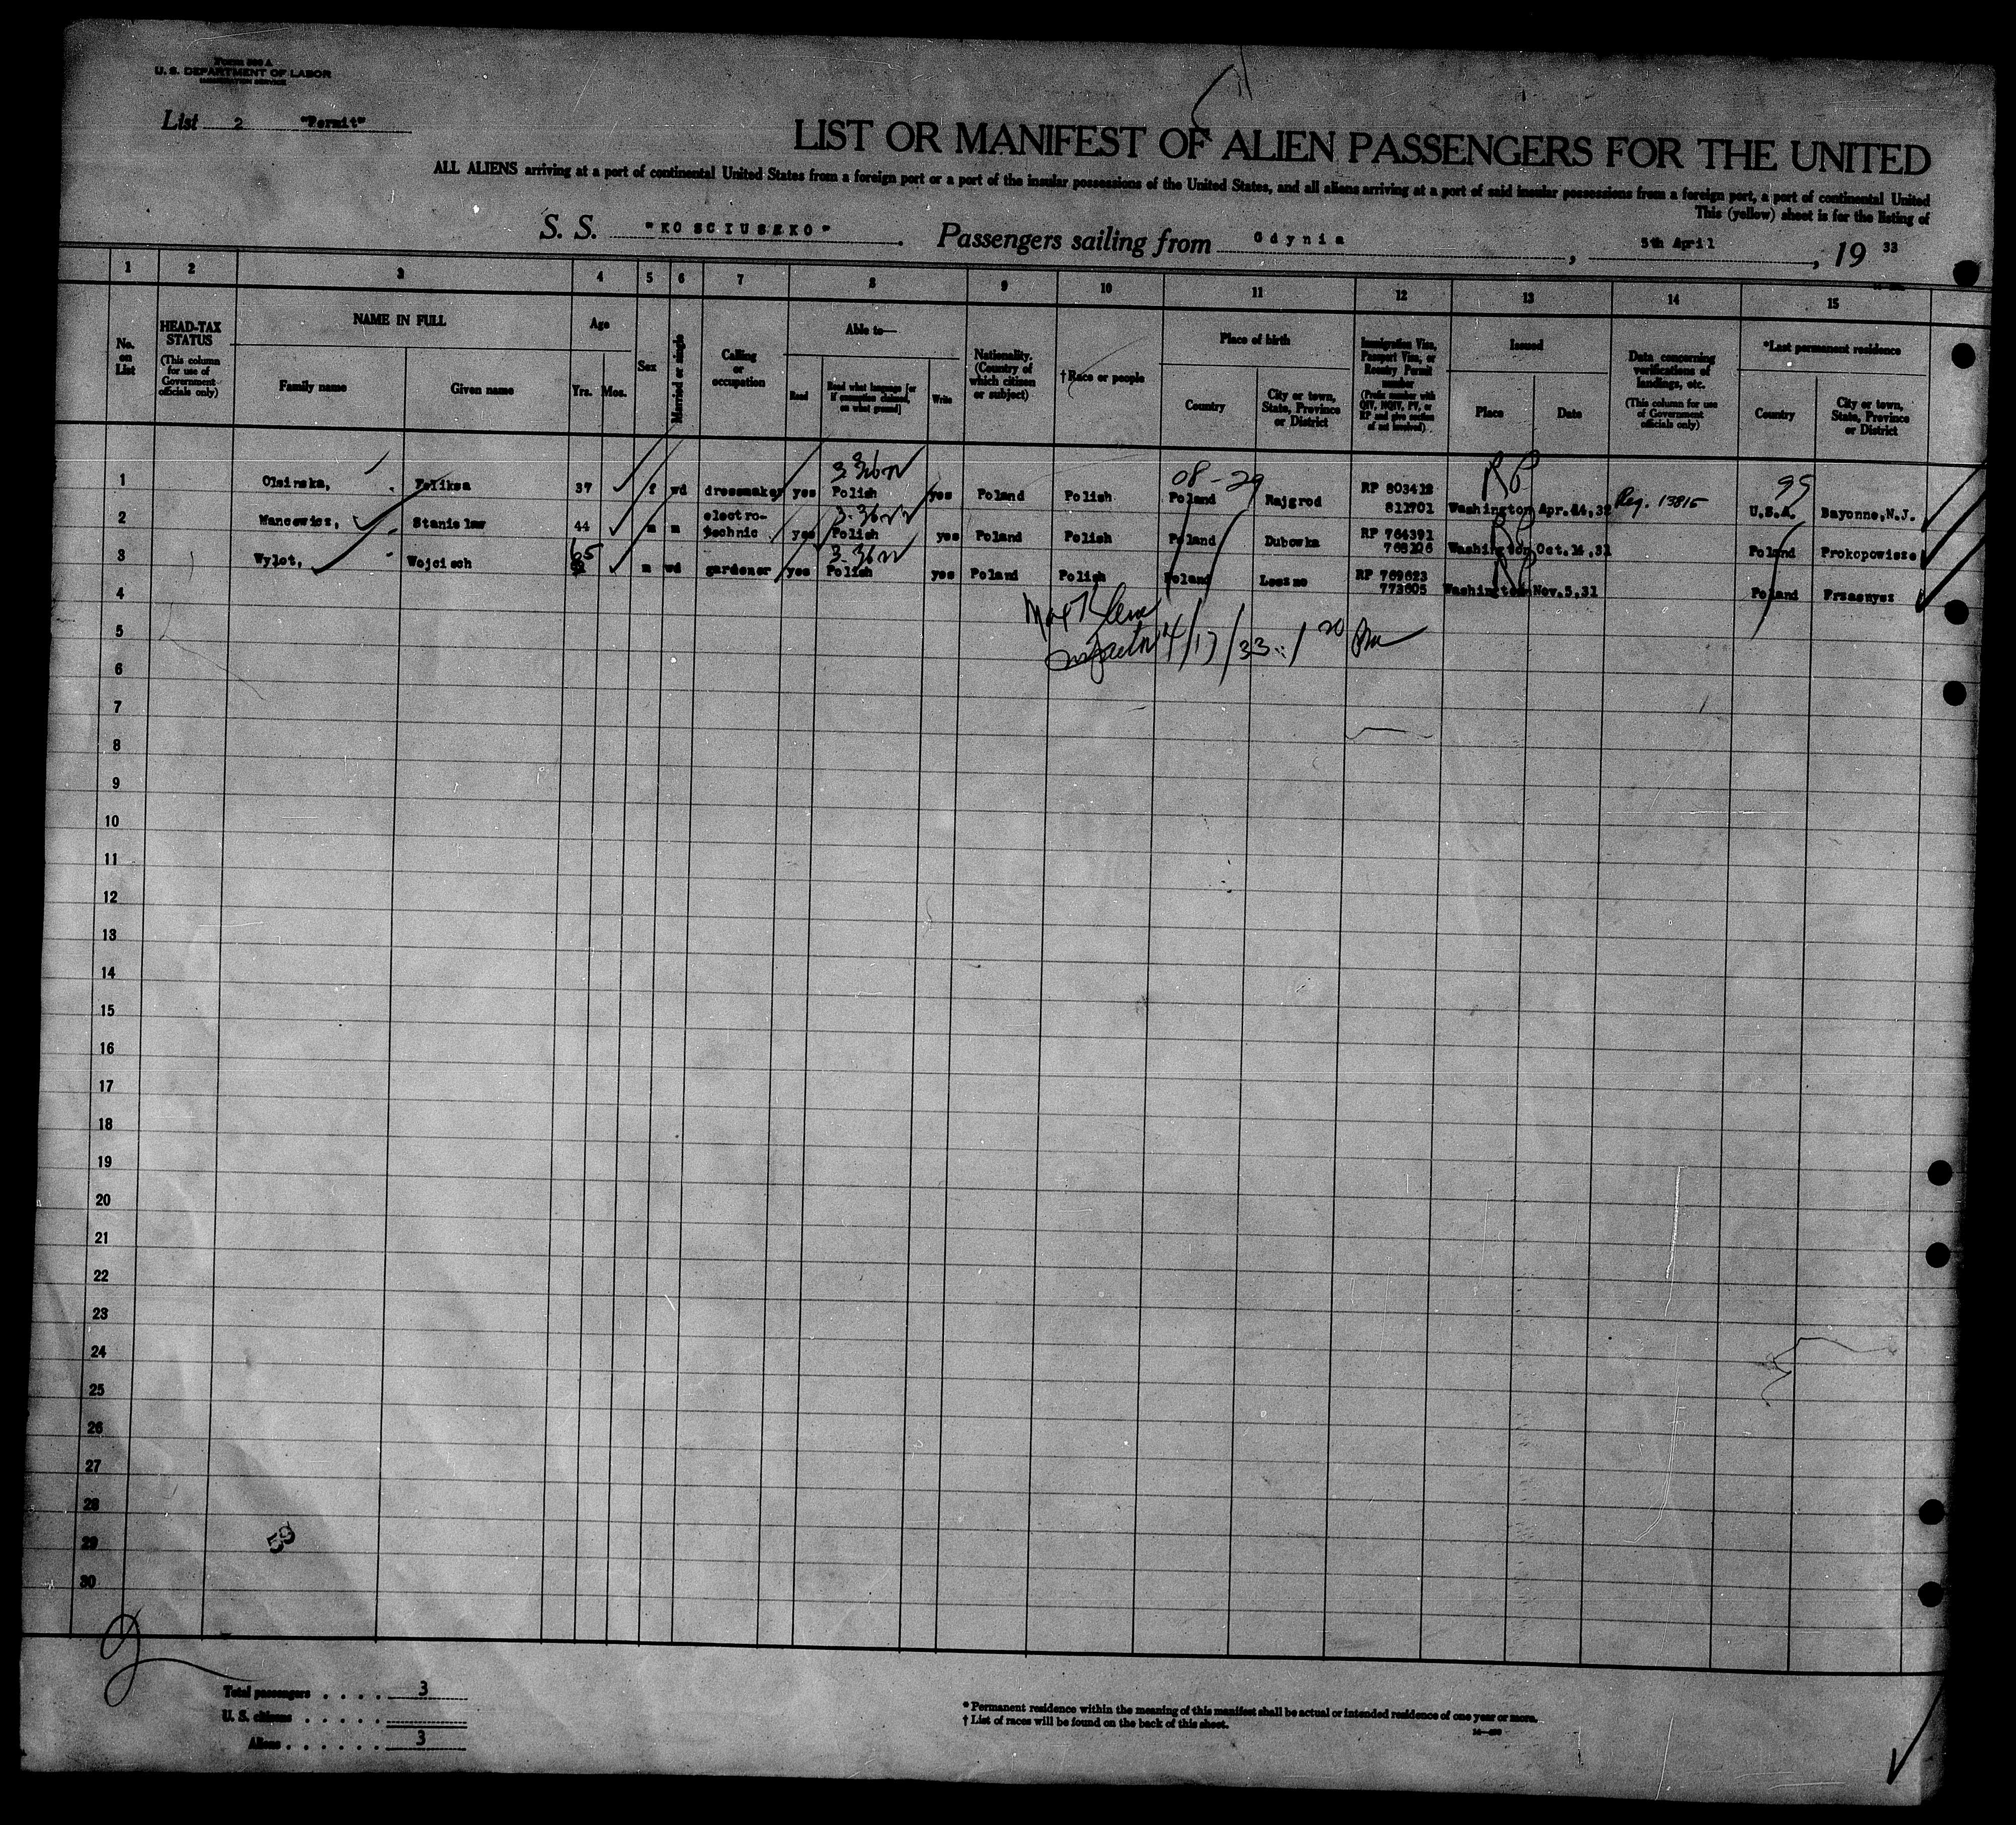 Form 500 A
U. S. DEPARTMENT OF LABOR
IMMIGRATION SERVICE
List 2 "Permit"
LIST OR MANIFEST OF ALIEN PASSENGERS FOR THE UNITED
ALL ALIENS arriving at a port of continental United States from a foreign port or a port of the insular possessions of the United States, and all aliens arriving at a port of said insular possessions from a foreign port, a port of continental United
This (yellow) sheet is for the listing of
S. S. "KOSCIUSZKO" . Passengers sailing from Gdynia , 5th April , 19 33
1 2 3 4 5 6 7 8 9 10 11 12 13 14 15
No. on List
HEAD-TAX STATUS
(This column for use of Government officials only)
NAME IN FULL
Family name Given name
Age
Yrs. Mos.
Sex
Married or single
Calling or occupation
Able to—
Read
Read what language [or if exemption claimed, on what ground]
Write
Nationality. (Country of which citizen or subject)
†Race or people
Place of birth
Country
City or town, State, Province or District
Immigration Visa, Passport Visa, or Reentry Permit number
(Prefix number with QIV, NQIV, PV, or RP and give section of act involved)
Issued
Place Date
Data concerning verifications of landings, etc.
(This column for use of Government officials only)
*Last permanent residence
Country
City or town, State, Province or District
1 Olsinska, Feliksa 37 f wd dressmaker yes Polish yes Poland Polish Poland Rajgrod RP 803412 Washington Apr. U.S.A. Bayonne,N.J.
08-29
RP
Reg. 13815
99
2 Wancewicz, Stanislaw 44 m m electro-technic yes Polish yes Poland Polish Poland Dubowka RP 764391 Washington Oct.14,31 Poland Prokopowisze
RP
3 Wylot, Wojciech 65 m wd gardener yes Polish yes Poland Polish Poland Leszno RP 769623 773605 Washington Nov.5,31 Poland Przasnysz
RP
4
Inspector 4/17/33 1 20 Pm
5
6
7
8
9
10
11
12
13
14
15
16
17
18
19
20
21
22
23
24
25
26
27
28
29
30
59
Total passengers . . . . 3
U. S. citizens . . . . .
Aliens . . . . . . 3
* Permanent residence within the meaning of this manifest shall be actual or intended residence of one year or more.
† List of races will be found on the back of this sheet.